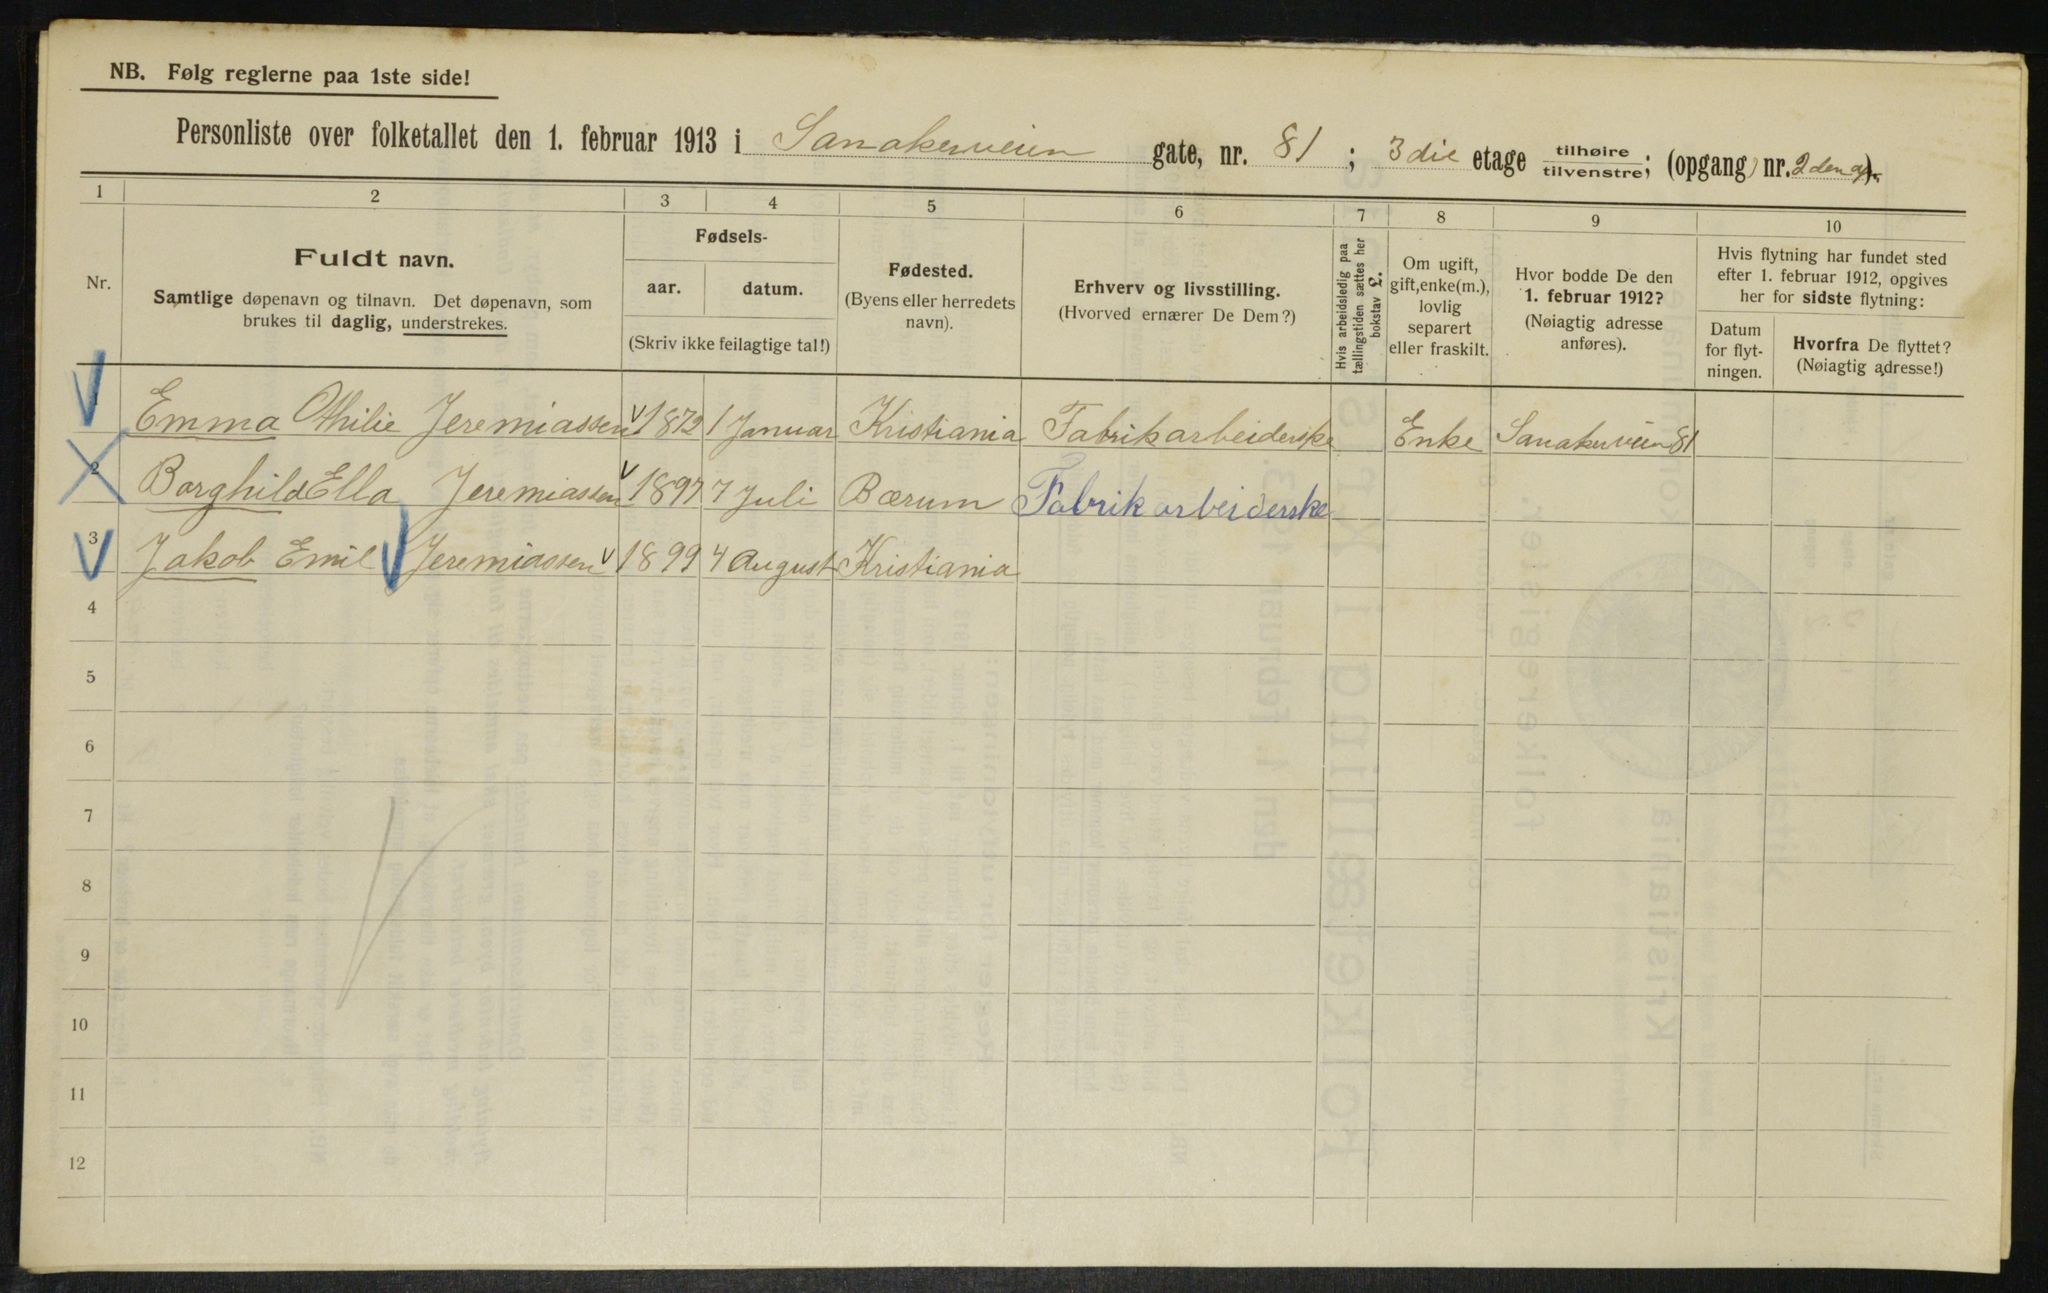 NB. Følg reglerne paa 1ste side!
Personliste over folketallet den 1. februar 1913 i Sanakerveien gate, nr. 81; 3die etage tilhøire tilvenstre; (opgang) nr. 2den
1 2 3 4 5 6 7 8 9 10
Nr.
Fuldt navn.
Samtlige døpenavn og tilnavn. Det døpenavn, som
brukes til daglig, understrekes.
Fødsels-
aar. datum.
(Skriv ikke feilagtige tal!)
Fødested.
(Byens eller herredets
navn).
Erhverv og livsstilling.
(Hvorved ernærer De Dem?)
Hvis arbeidsledig paa
tællingstiden sættes her
bokstav L.
Om ugift,
gift, enke(m.),
lovlig
separert
eller fraskilt.
Hvor bodde De den
1. februar 1912?
(Nøiagtig adresse
anføres).
Hvis flytning har fundet sted
efter 1. februar 1912, opgives
her for sidste flytning:
Datum
for flyt-
ningen.
Hvorfra De flyttet?
(Nøiagtig adresse!)
1 Emma Othilie Jeremiassen 1872 1 Januar Kristiania Fabrikarbeiderske Enke Sanakerveien 81
2 Borghild Ella Jeremiassen 1897 7 Juli Bærum Fabrikarbeiderske
3 Jakob Emil Jeremiassen 1899 4 August Kristiania
4
5
6
7
8
9
10
11
12